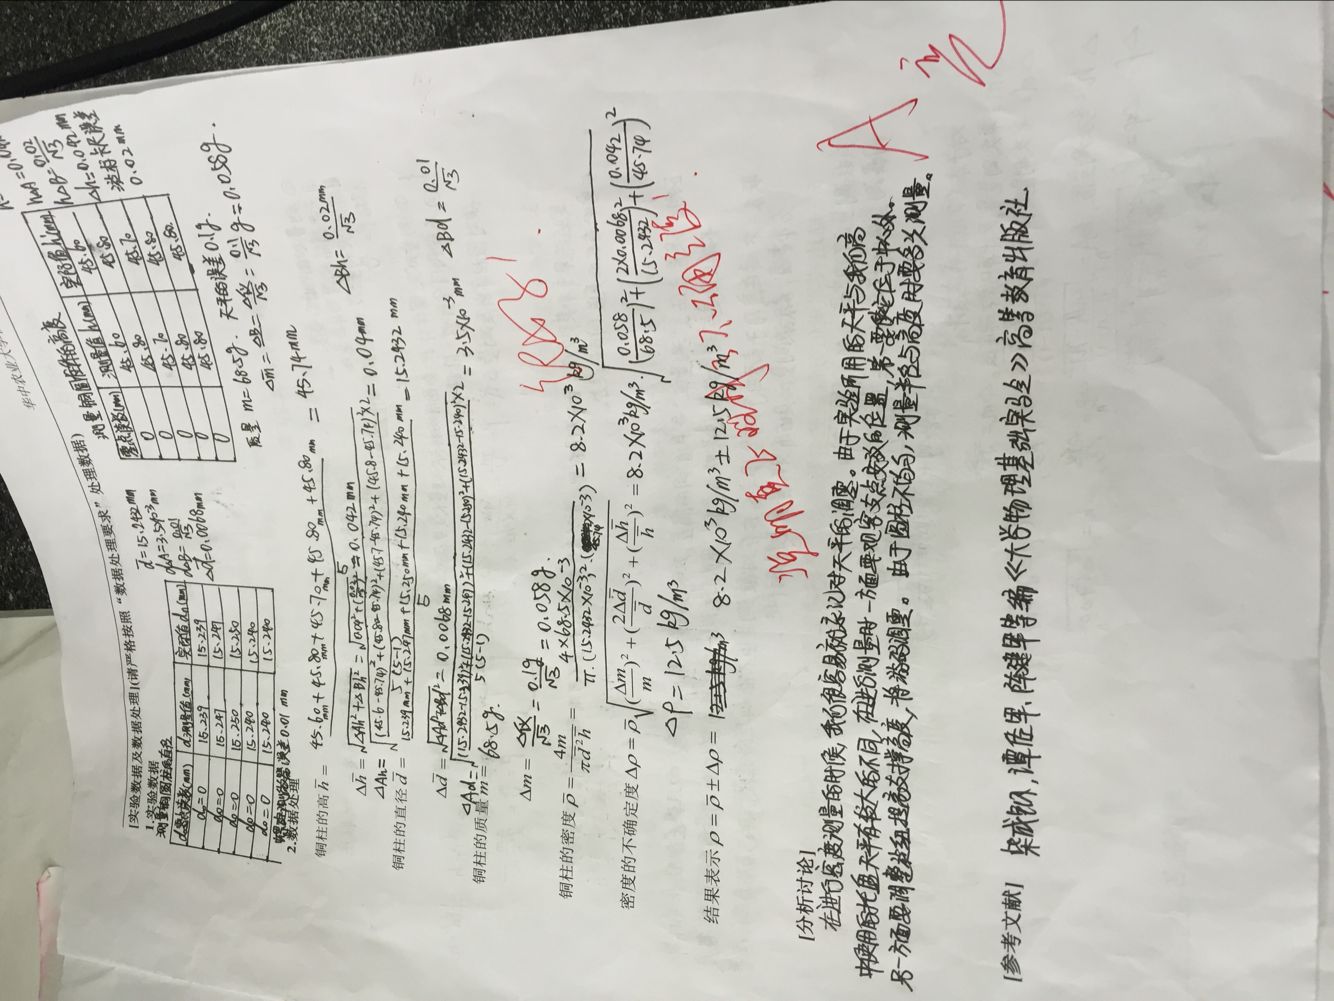 华中农业大学
[实验数据及数据处理](请严格按照“数据处理要求”处理数据)
1.实验数据
测量铜圆柱的直径
d零点读数(mm) d测量值(mm) 实际值dn(mm)
d₀=0 15.239 15.239
d₀=0 15.247 15.247
d₀=0 15.250 15.250
d₀=0 15.240 15.240
d₀=0 15.240 15.240
螺旋测微器误差0.01 mm
d̅=15.2432mm
d△A=3.5×10⁻³mm
d△B=0.01/√3
△d̅=0.0068mm
测量铜圆柱的高度
零点读数(mm) 测量值h(mm) 实际值h'(mm)
0 45.60 45.60
0 45.80 45.80
0 45.70 45.70
0 45.80 45.80
0 45.80 45.80
h△A=0.04mm
h△B=0.02/√3
△h=0.042mm
游标卡尺误差
0.02mm
质量 m=68.5g. 天平的误差0.1g.
△m̅=△B=△仪/√3=0.1/√3 g=0.058g.
2.数据处理
铜柱的高h̅= (45.60mm+45.80mm+45.70mm+45.80mm+45.80mm)/5 = 45.74mm
△h̅=√(△Ah²+△Bh²)=√(0.04²+(0.02/√3)²)=0.042mm △Bh=0.02mm/√3
△Ah=√(((45.6-45.74)²+(45.80-45.74)²+(45.7-45.74)²+(45.8-45.74)²×2)/5(5-1))=0.04mm
铜柱的直径d̅= (15.239mm+15.247mm+15.250mm+15.240mm+15.240mm)/5=15.2432 mm
△d̅=√(△Ad²+△Bd²)=0.0068mm
△Ad=√(((15.2432-15.239)²+(15.2432-15.247)²+(15.2432-15.250)²+(15.2432-15.240)²×2)/5(5-1))=3.5×10⁻³mm △Bd=0.01/√3
铜柱的质量m=68.5g.
△m=△仪/√3=0.1g/√3=0.058g.
很好!
铜柱的密度ρ̅=4m/πd̅²h̅=4×68.5×10⁻³/π.(15.2432×10⁻³)².(45.74×10⁻³)=8.2×10³kg/m³
密度的不确定度△ρ=ρ̅√((△m/m)²+(2△d̅/d̅)²+(△h̅/h̅)²)=8.2×10³kg/m³.√((0.058/68.5)²+(2×0.0068/15.2432)²+(0.042/45.74)²)
△ρ=12.5kg/m³
结果表示ρ=ρ̅±△ρ= 8.2×10³kg/m³±12.5kg/m³
不确定度!
[分析讨论]
在进行密度测量的时候,我们很容易就忘记对天平的调零。由于实验所用的天平与我们高
中使用的托盘天平有较大的不同,在进行测量时一方面要观察支点安放的位置,第一要使它位于中心外。
另一方面要调整旋钮提高支撑高度,将游码调零。由于圆柱不均匀,测量半径与高度时要多次测量。
A
[参考文献] 柴成钢,谭佐军,陈建军等编《大学物理基础实验》高等教育出版社